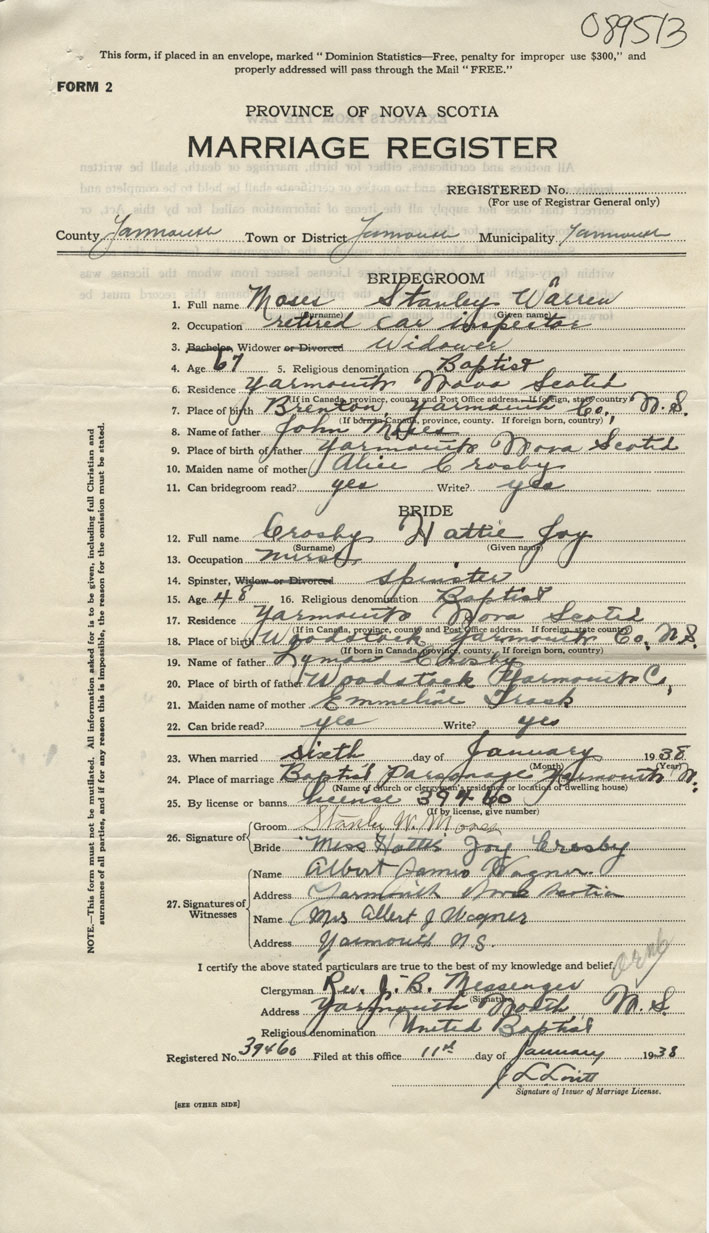 089513
This form, if placed in an envelope, marked "Dominion Statistics—Free, penalty for improper use $300," and
properly addressed will pass through the Mail "FREE."
FORM 2
PROVINCE OF NOVA SCOTIA
MARRIAGE REGISTER
REGISTERED No.
(For use of Registrar General only)
County Yarmouth Town or District Yarmouth Municipality Yarmouth
BRIDEGROOM
1. Full name Moses Stanley Warren
(Surname) (Given name)
2. Occupation retired car inspector
3. Bachelor, Widower or Divorced Widower
4. Age 67 5. Religious denomination Baptist
6. Residence Yarmouth Nova Scotia
(If in Canada, province, county and Post Office address. If foreign, state country)
7. Place of birth Brenton, Yarmouth Co., N.S.
(If born in Canada, province, county. If foreign born, country)
8. Name of father John Moses
9. Place of birth of father Yarmouth Nova Scotia
10. Maiden name of mother Alice Crosby
11. Can bridegroom read? yes Write? yes
BRIDE
12. Full name Crosby Hattie Joy
(Surname) (Given name)
13. Occupation nurse
14. Spinster, Widow or Divorced spinster
15. Age 48 16. Religious denomination Baptist
17. Residence Yarmouth Nova Scotia
(If in Canada, province, county and Post Office address. If foreign, state country)
18. Place of birth Woodstock Yarmouth Co. N.S.
(If born in Canada, province, county. If foreign born, country)
19. Name of father Lyman Crosby
20. Place of birth of father Woodstock Yarmouth Co,
21. Maiden name of mother Emmeline Trask
22. Can bride read? yes Write? yes
23. When married sixth day of January 1938
(Month) (Year)
24. Place of marriage Baptist Parsonage Yarmouth N.
(Name of church or clergyman's residence or location of dwelling house)
25. By license or banns license 39460
(If by license, give number)
26. Signature of Groom Stanley W. Moses
Bride Miss Hattie Joy Crosby
27. Signatures of Witnesses
Name Albert James Wagner.
Address Yarmouth Nova Scotia
Name Mrs Albert J Wagner
Address Yarmouth N.S.
I certify the above stated particulars are true to the best of my knowledge and belief.
Clergyman Rev. J. B. Messenger
(Signature)
Address Yarmouth North N.S.
Religious denomination United Baptist
Registered No. 39460 Filed at this office 11th day of January 1938
Signature of Issuer of Marriage License.
[SEE OTHER SIDE]
NOTE.—This form must not be mutilated. All information asked for is to be given, including full Christian and
surnames of all parties, and if for any reason this is impossible, the reason for the omission must be stated.